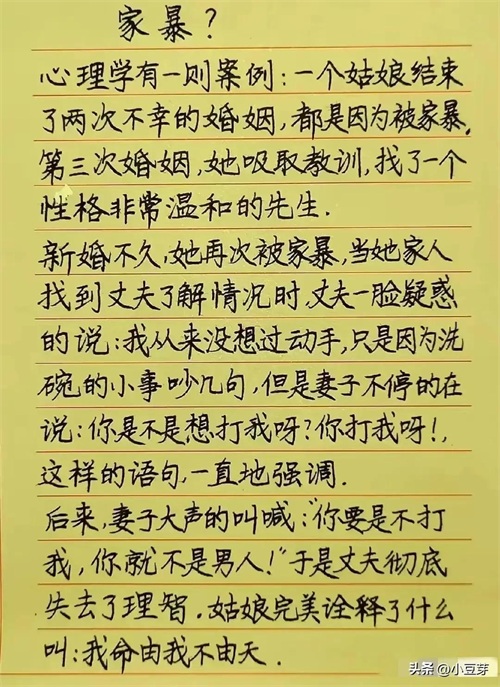 家暴?
心理学有一则案例:一个姑娘结束
了两次不幸的婚姻,都是因为被家暴,
第三次婚姻,她吸取教训,找了一个
性格非常温和的先生.
新婚不久,她再次被家暴,当她家人
找到丈夫了解情况时,丈夫一脸疑惑
的说:我从来没想过动手,只是因为洗
碗的小事吵几句,但是妻子不停的在
说:你是不是想打我呀?你打我呀!,
这样的语句,一直地强调.
后来,妻子大声的叫喊:“你要是不打
我,你就不是男人!”于是丈夫彻底
失去了理智.姑娘完美诠释了什么
叫:我命由我不由天.
头条 @小豆芽